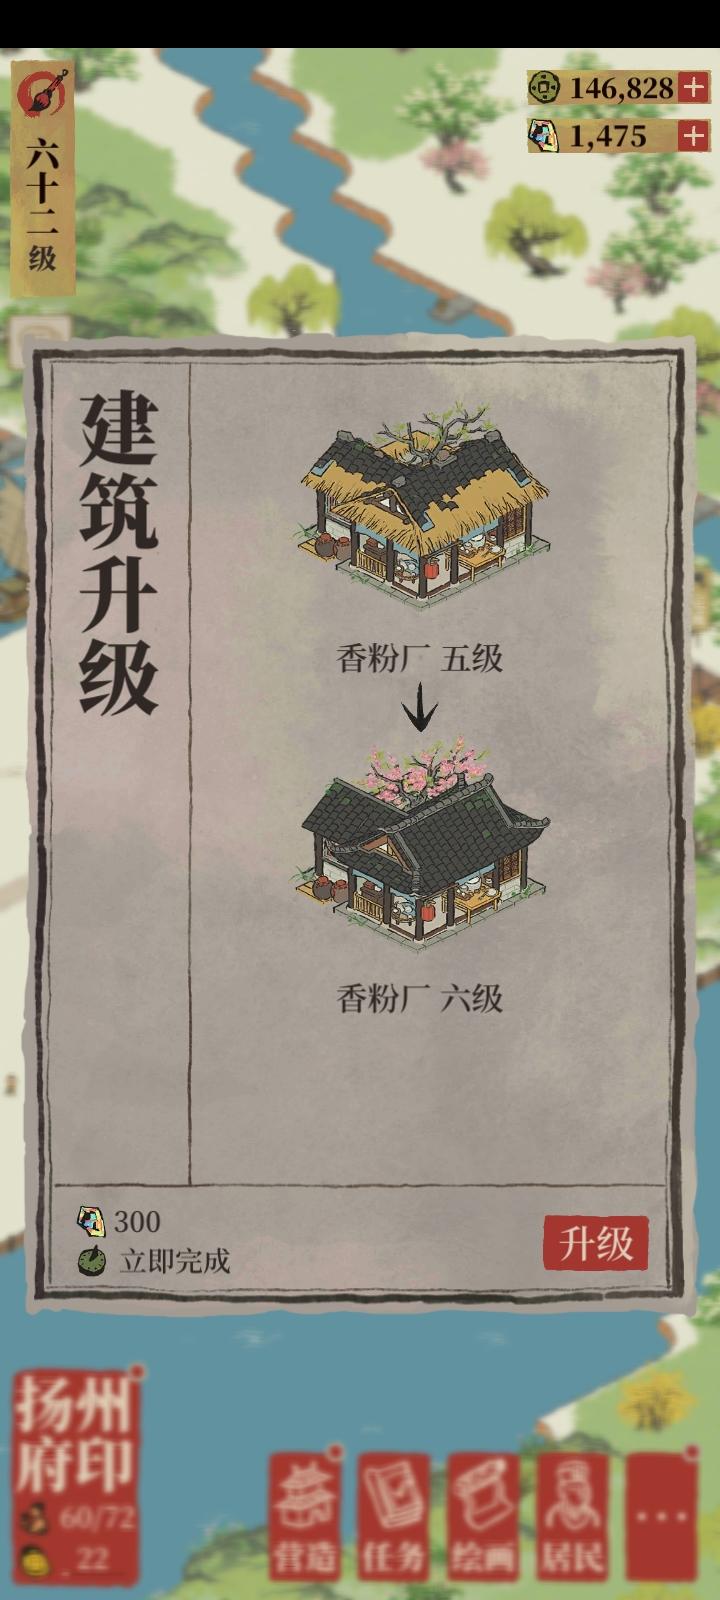 六十二级
146,828
1,475
建筑升级
香粉厂 五级
香粉厂 六级
300
立即完成
升级
扬州
府印
60/72
22
营造
任务
绘画
居民